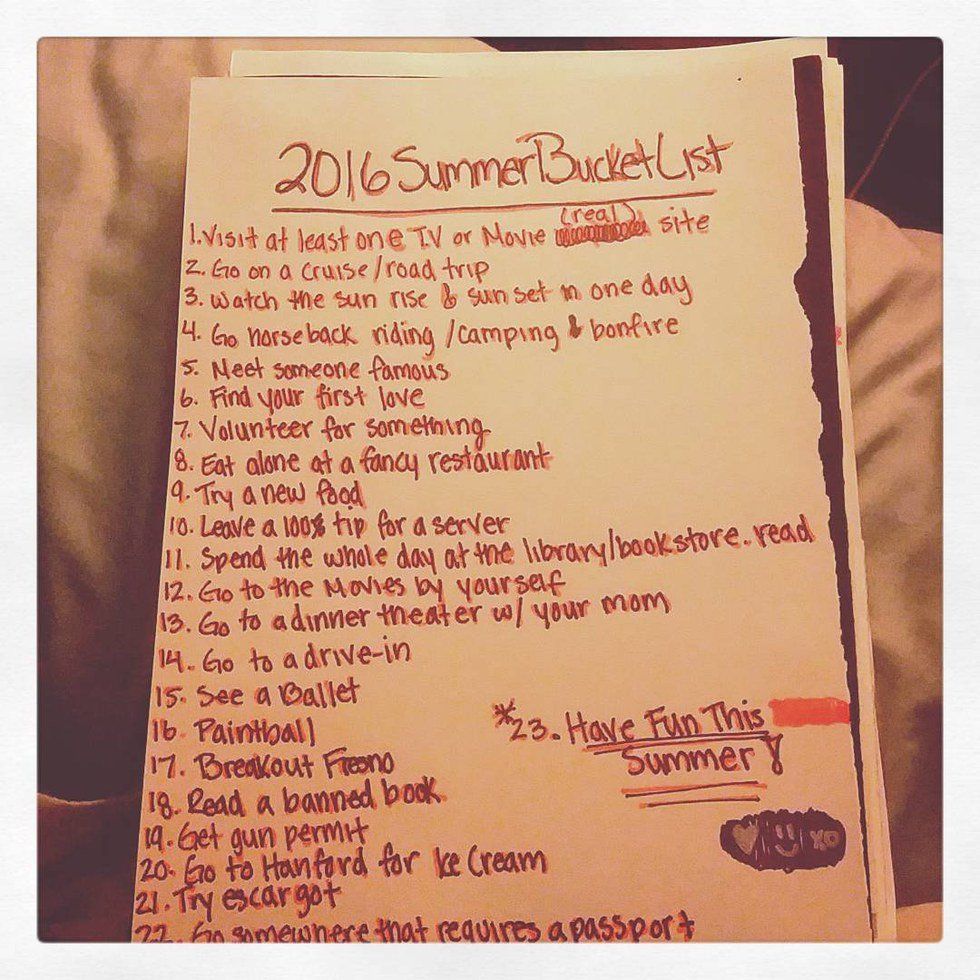 2016 Summer Bucket List
(real)
1. Visit at least one T.V or Movie site
2. Go on a cruise/road trip
3. Watch the sun rise & sun set in one day
4. Go horseback riding /camping & bonfire
5. Meet someone famous
6. Find your first love
7. Volunteer for something
8. Eat alone at a fancy restaurant
9. Try a new food
10. Leave a 100% tip for a server
11. Spend the whole day at the library/bookstore. read
12. Go to the Movies by yourself
13. Go to a dinner theater w/ your mom
14. Go to a drive-in
15. See a Ballet
16. Paintball
17. Breakout Fresno
18. Read a banned book
19. Get gun permit
20. Go to Hanford for Ice Cream
21. Try escargot
22. Go somewhere that requires a passport
*23. Have Fun This
Summer!
xo